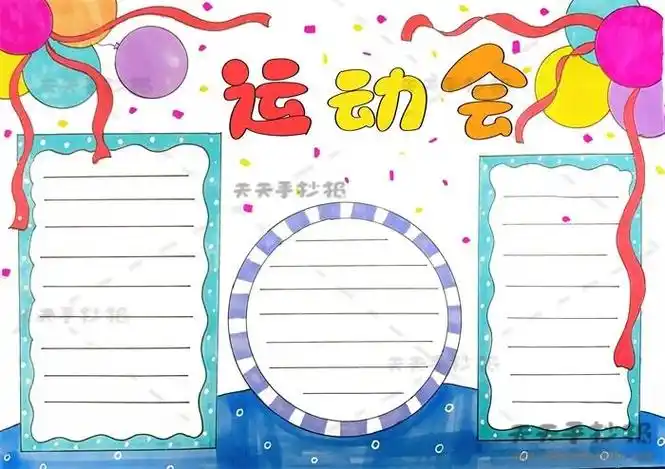 运动会
天天手抄报
天天手抄报
天天手抄报
天天手抄报